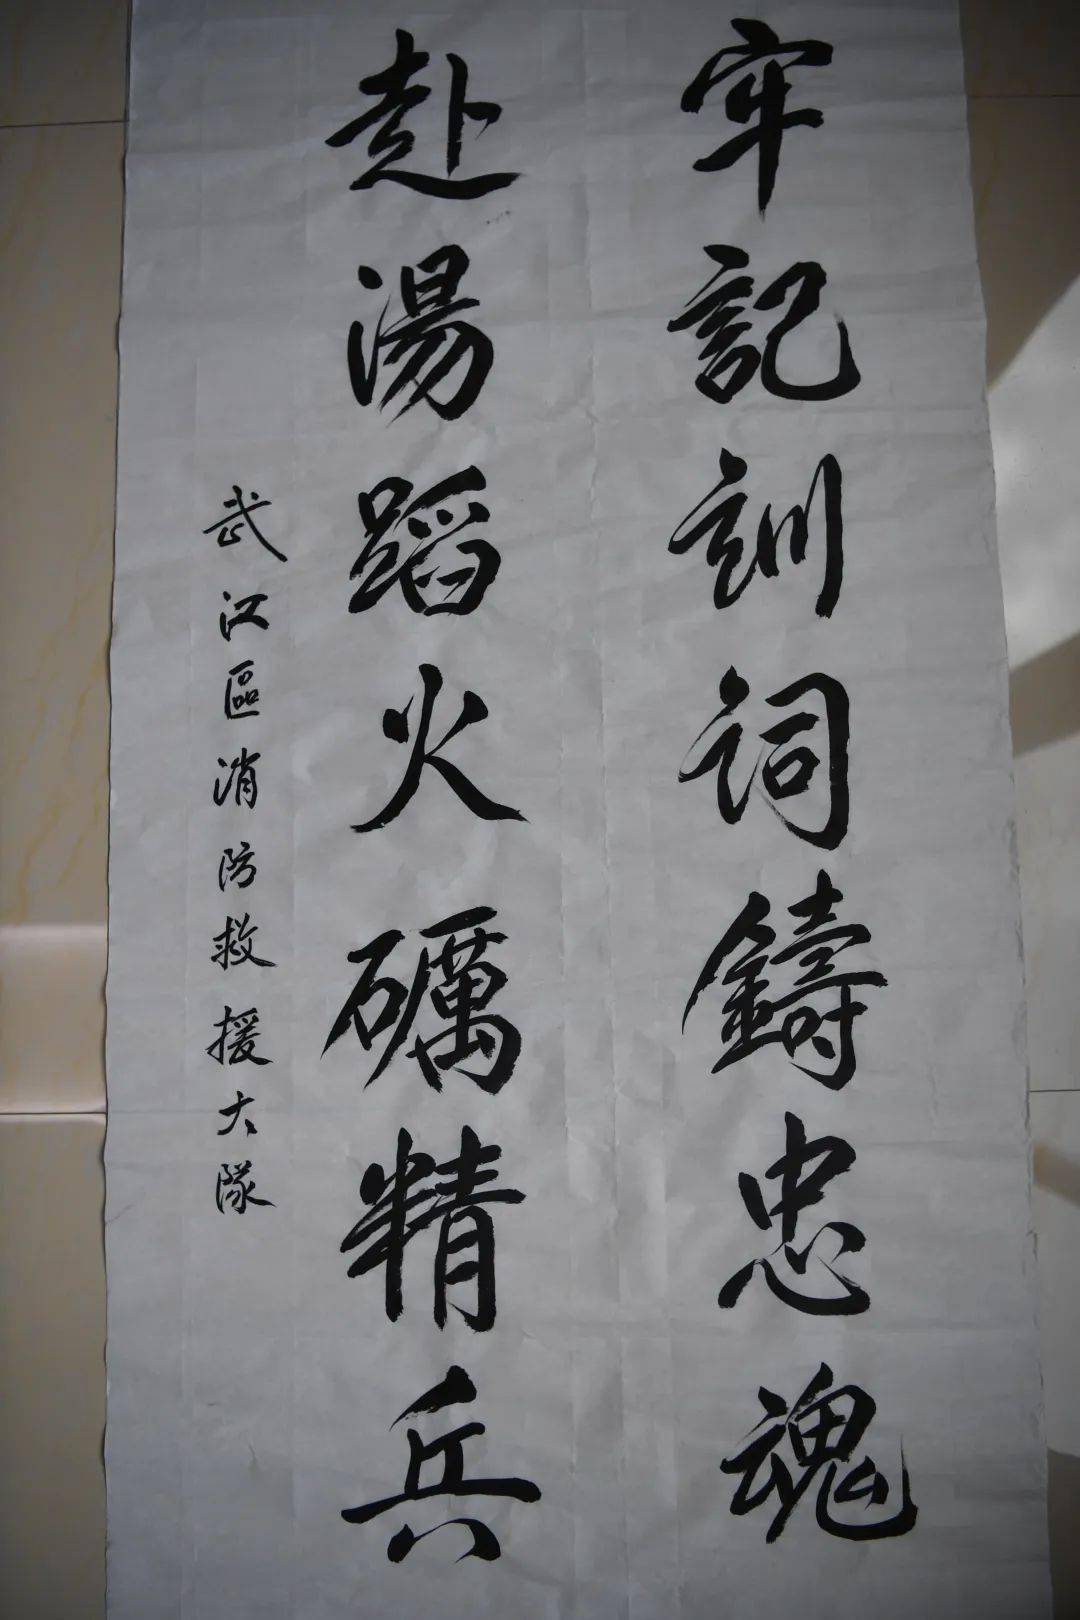 牢記訓詞鑄忠魂
赴湯蹈火礪精兵
武江區消防救援大隊